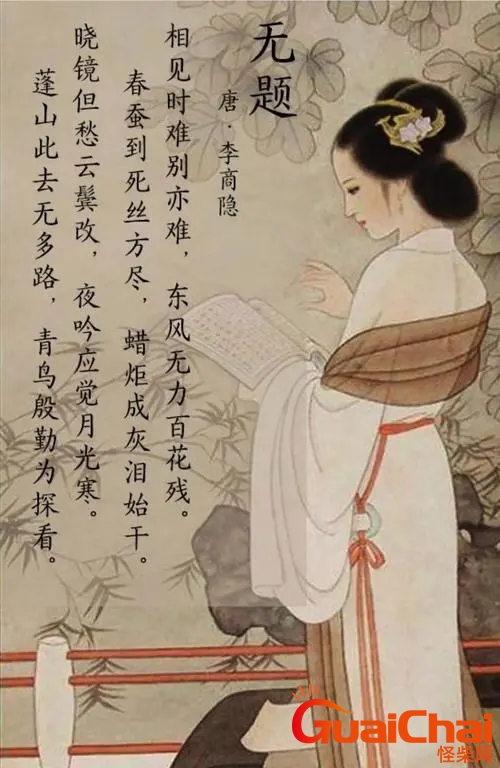 无题
唐·李商隐
相见时难别亦难，东风无力百花残。
春蚕到死丝方尽，蜡炬成灰泪始干。
晓镜但愁云鬓改，夜吟应觉月光寒。
蓬山此去无多路，青鸟殷勤为探看。
GuaiChai
怪柴网